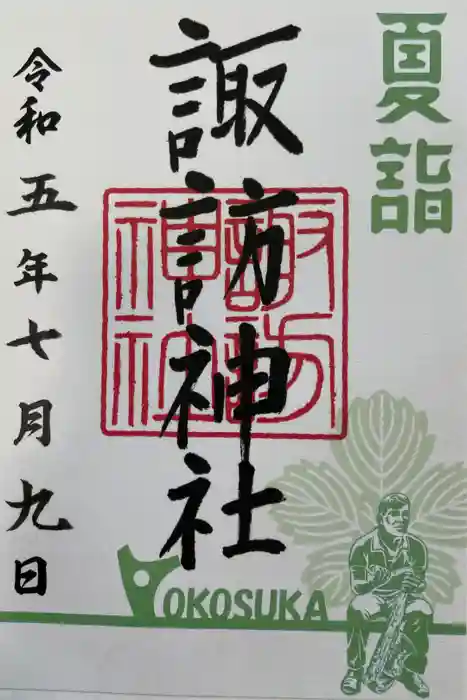 夏詣
諏訪神社
諏訪神社
令和五年七月九日
YOKOSUKA